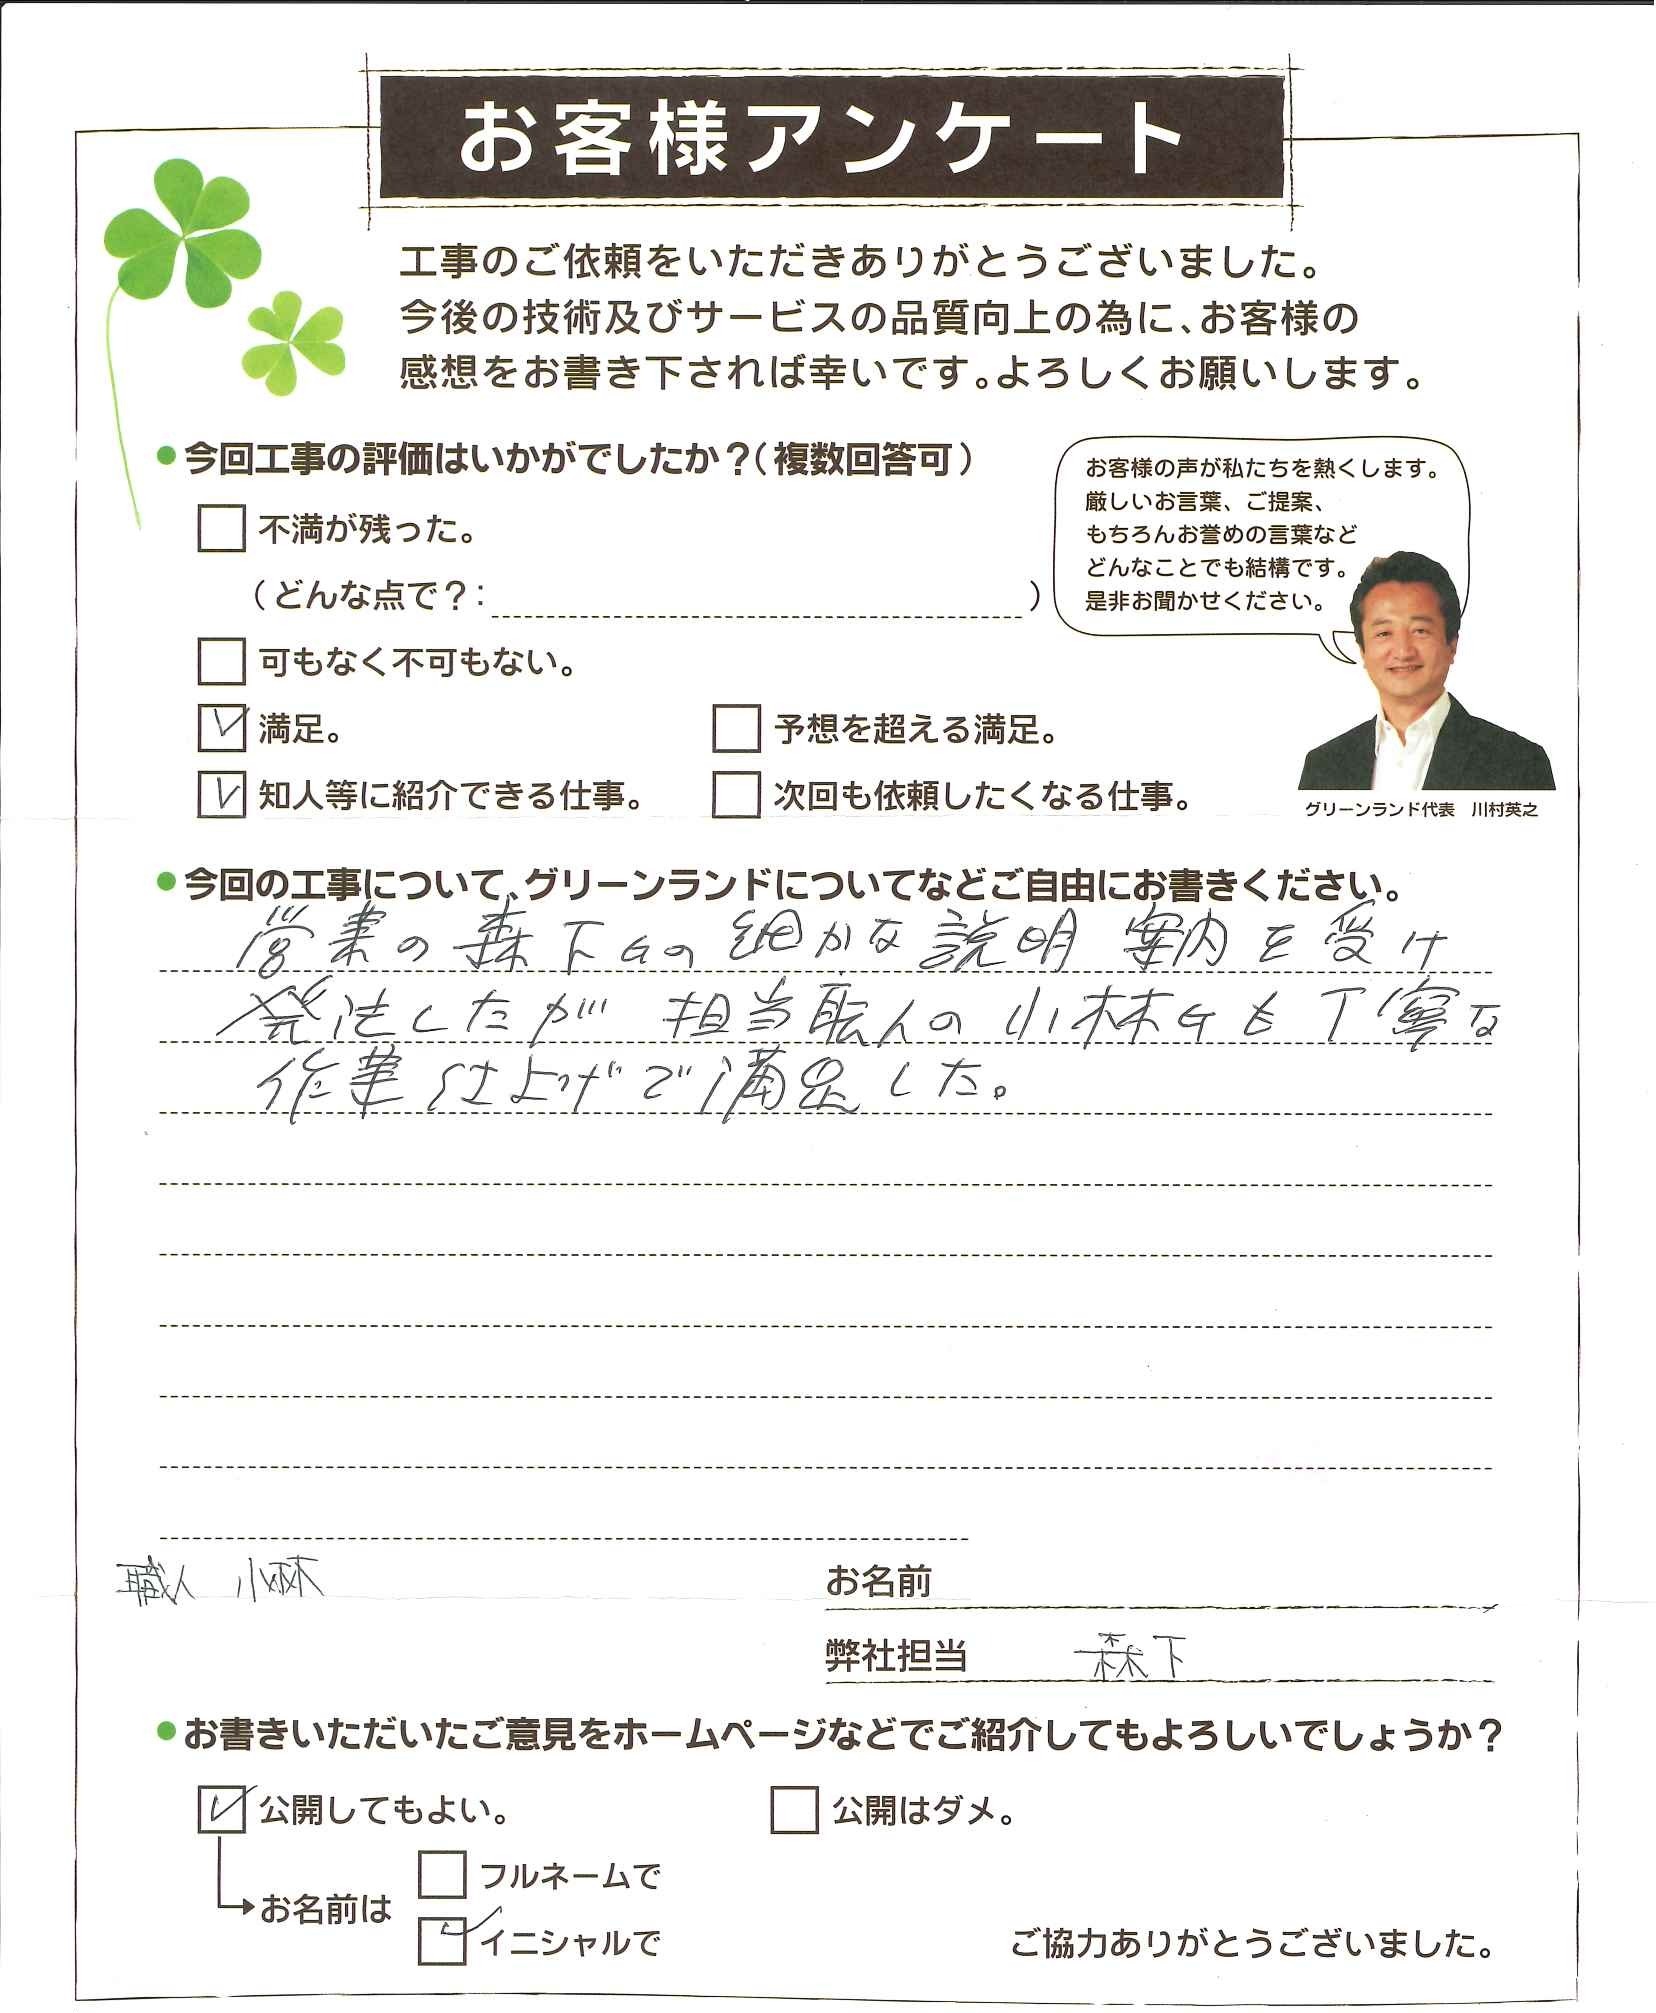 お客様アンケート
工事のご依頼をいただきありがとうございました。
今後の技術及びサービスの品質向上の為に、お客様の
感想をお書き下されば幸いです。よろしくお願いします。
●今回工事の評価はいかがでしたか？（複数回答可）
不満が残った。
（どんな点で？：　）
可もなく不可もない。
満足。
予想を超える満足。
知人等に紹介できる仕事。
次回も依頼したくなる仕事。
お客様の声が私たちを熱くします。
厳しいお言葉、ご提案、
もちろんお誉めの言葉など
どんなことでも結構です。
是非お聞かせください。
グリーンランド代表　川村英之
●今回の工事について、グリーンランドについてなどご自由にお書きください。
営業の森下さんの細かな説明 案内を受け
発注したが 担当職人の小林さんも丁寧な
作業 仕上げで満足した。
職人 小林
お名前
弊社担当 森下
●お書きいただいたご意見をホームページなどでご紹介してもよろしいでしょうか？
公開してもよい。
公開はダメ。
お名前は
フルネームで
イニシャルで
ご協力ありがとうございました。